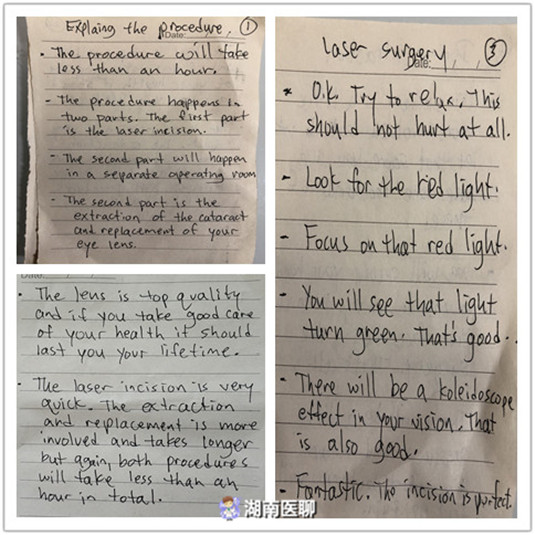 Explaing the procedure, ①
Date:
• The procedure will take
less than an hour.
- The procedure happens in
two parts. The first part
is the laser incision.
- The second part will happen
in a separate operating room
- The second part is the
extraction of the cataract
and replacement of your
eye lens.
Date:
• The lens is top quality
and if you take good care
of your health it should
last you your lifetime.
• The laser incision is very
quick. The extraction
and replacement is more
involved and takes longer
but again, both procedures
will take less than an
hour in total.
laser surgery, ③
Date:
* O.K. Try to relax. This
should not hurt at all.
- Look for the red light.
- Focus on that red light.
- You will see that light
turn green. That's good.
- There will be a koleidoscope
effect in your vision. That
is also good.
- Fantastic. The incision is perfect.
湖南医聊